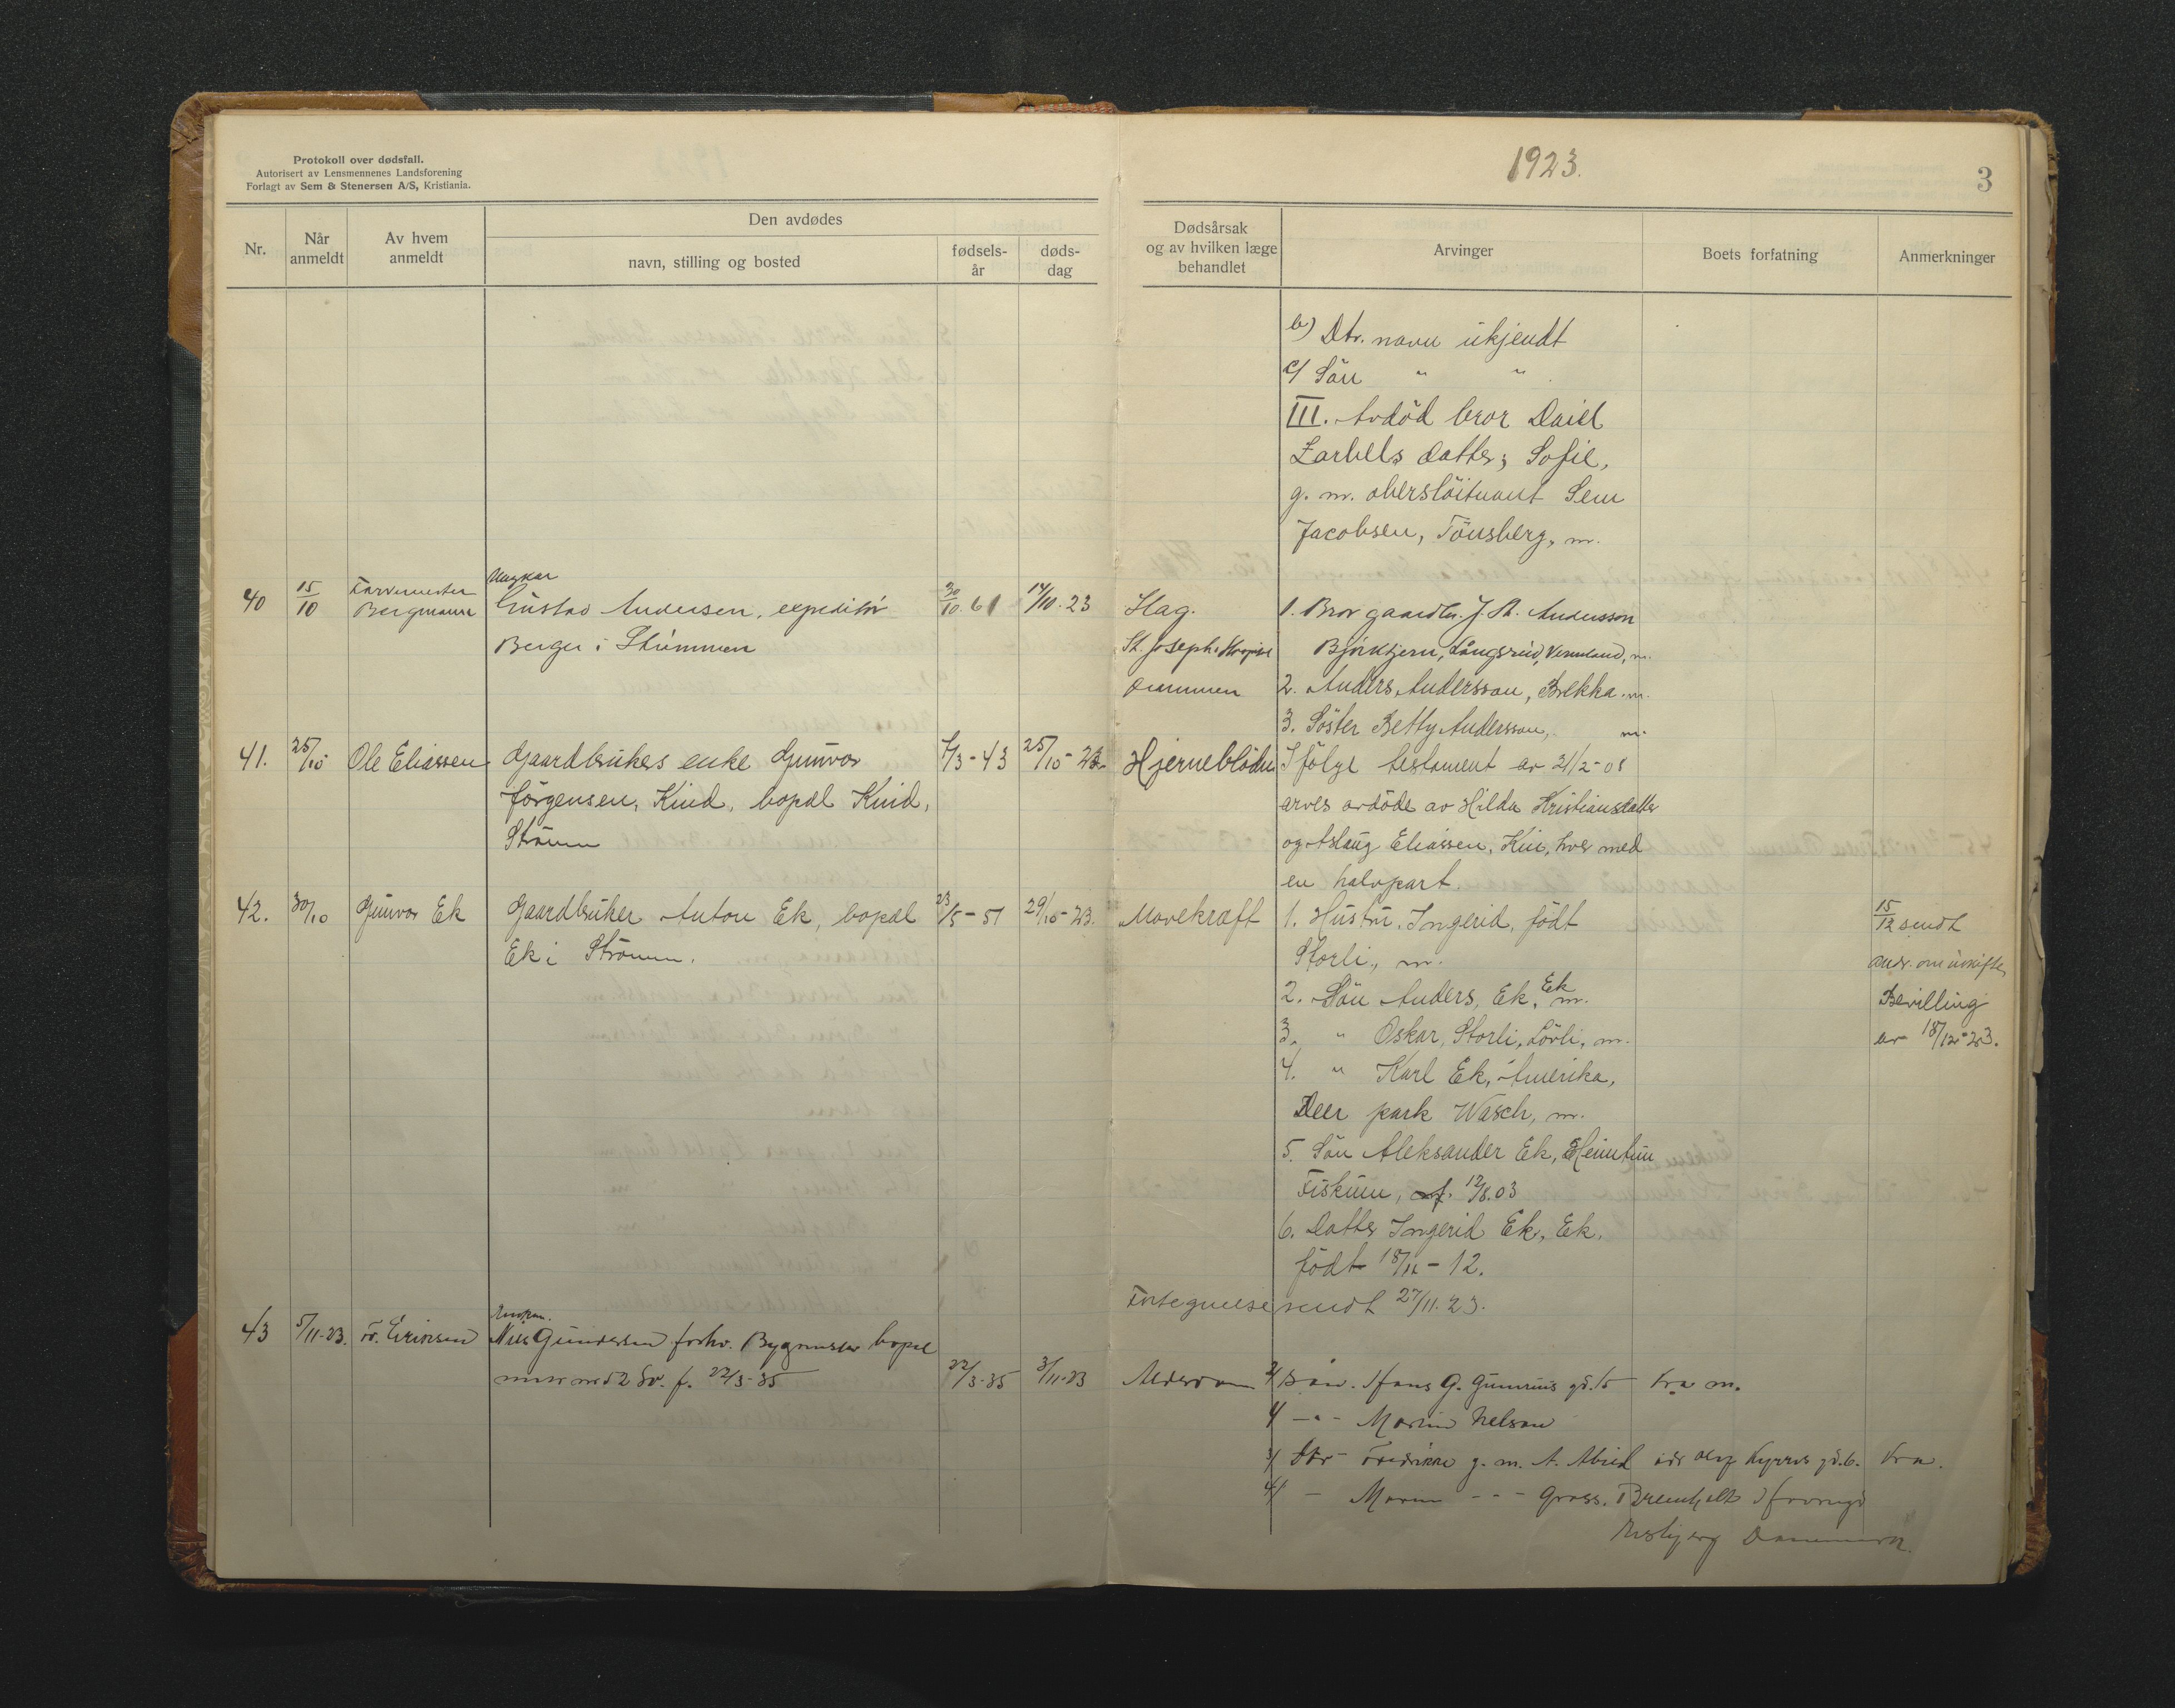 Protokoll over dødsfall.
Autorisert av Lensmennenes Landsforening
Forlagt av Sem & Stenersen A/S, Kristiania.
1923.
3
Nr.
Når anmeldt
Av hvem anmeldt
Den avdødes
navn, stilling og bosted
fødsels-
år
døds-
dag
Dødsårsak
og av hvilken læge
behandlet
Arvinger
Boets forfatning
Anmerkninger
b) Dtr. navn ukjendt
c) Sön " "
III. Avdöd bror Daiel
Zarbells datter; Sofie,
g. m. oberslöitnant Sem
Jacobsen, Tönsberg, m.
40 15/10 Farvemester Bergmann
Ungkar
Gustav Andersen, expeditör
Berger i Strömmen
30/10 61 14/10.23
Slag.
St. Josephs Hospital
Drammen
1. Bror gaardbr. J. A. Andersson
Björktjern, Långsrud, Vermland, m.
2. Anders Andersson, Brekka. m.
3. Söster Betty Andersson, m.
41. 25/10 Ole Eliassen
Gaardbrukers enke Gunvor
Jörgensen, Kind, bopæl Kind,
Strömm
7/3-43 25/10-23
Hjerneblödn
Ifölge testament av 21/2-08
arves avdöde av Hilda Kristiansdatter
og Aslaug Eliassen, Kin, hver med
en halvpart.
42. 30/10 Gunvor Ek
Gaardbruker Anton Ek, bopæl
Ek i Strömm.
23/5-51 29/10-23.
Mavekræft
1. Hustru Ingerid, födt
Storli, m.
2. Sön Anders, Ek, Ek m.
3. " Oskar, Storli, Lövli, m.
4. " Karl Ek, Amerika,
Deer park Wasch, m.
5. Sön Aleksander Ek, Heimtun
Fiskum, f. 12/8.03
6. Datter Ingerid Ek, Ek,
födt 18/11-12.
15/12 sendt
andr. om uskifte,
Bevilling
av 18/12-23.
Fortegnelse sendt 27/11.23.
43 5/11-23. Fr. Eriksen
Enkem.
Nils Gundersen forhv. Bygmester bopæl
f. 22/3-35
22/3-35 3/11-23
Alderdom
1/ Sön. Hans G. gd. 15 Kra m.
2/ -"- Martin Nelson
3/ Dtr Fredrikke g. m. A. Abild Olaf Kyrres gd. 6. Kra.
4/ - Maren - " - Gross. Bremholt
Esbjerg Danmark.